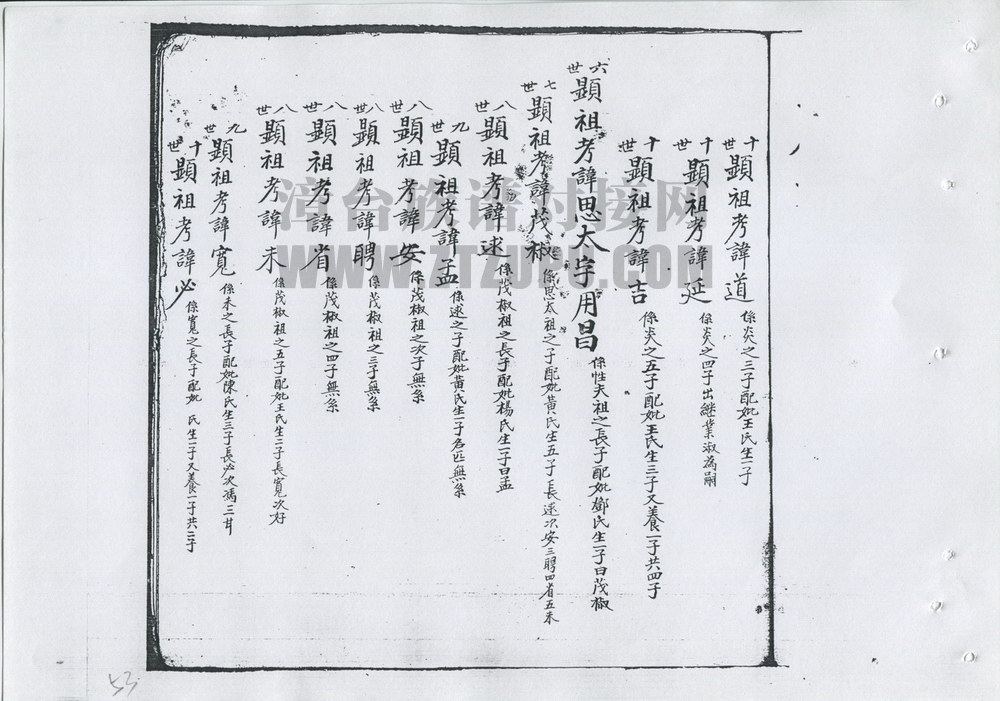 十世顯祖考諱道 係炎之三子配妣王氏生一子
十世顯祖考諱延 係炎之四子出繼業淑為嗣
十世顯祖考諱吉 係炎之五子配妣王氏生三子又養一子共四子
六世顯祖考諱思太字用昌 係性夫祖之長子配妣鄧氏生一子曰茂椒
七世顯祖考諱茂椒 係思太祖之子配妣黃氏生五子長逑次安三聘四省五耒
八世顯祖考諱逑 係茂椒祖之長子配妣楊氏生一子曰孟
九世顯祖考諱孟 係逑之子配妣黃氏生一子名匹無系
八世顯祖考諱安 係茂椒祖之次子無系
八世顯祖考諱聘 係茂椒祖之三子無系
八世顯祖考諱省 係茂椒祖之四子無系
八世顯祖考諱耒 係茂椒祖之五子配妣王氏生二子長寬次好
九世顯祖考諱寬 係耒之長子配妣陳氏生三子長必次馮三甘
十世顯祖考諱必 係寬之長子配妣 氏生一子又養一子共二子
漳台族谱对接网
53